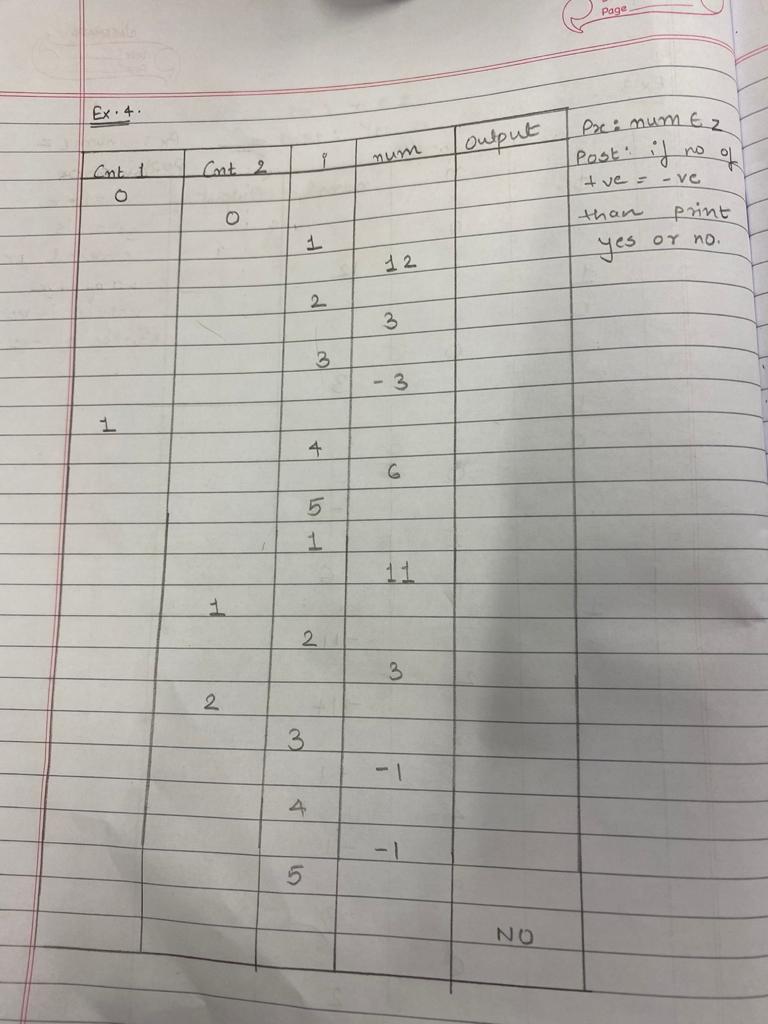 Page
Ex. 4.
Cnt 1 Cnt 2 i num output
0
0
1
12
2
3
3
-3
1
4
6
5
1
11
1
2
3
2
3
-1
4
-1
5
NO
Pre: num ∈ Z
Post: if no of
+ve = -ve
than print
yes or no.